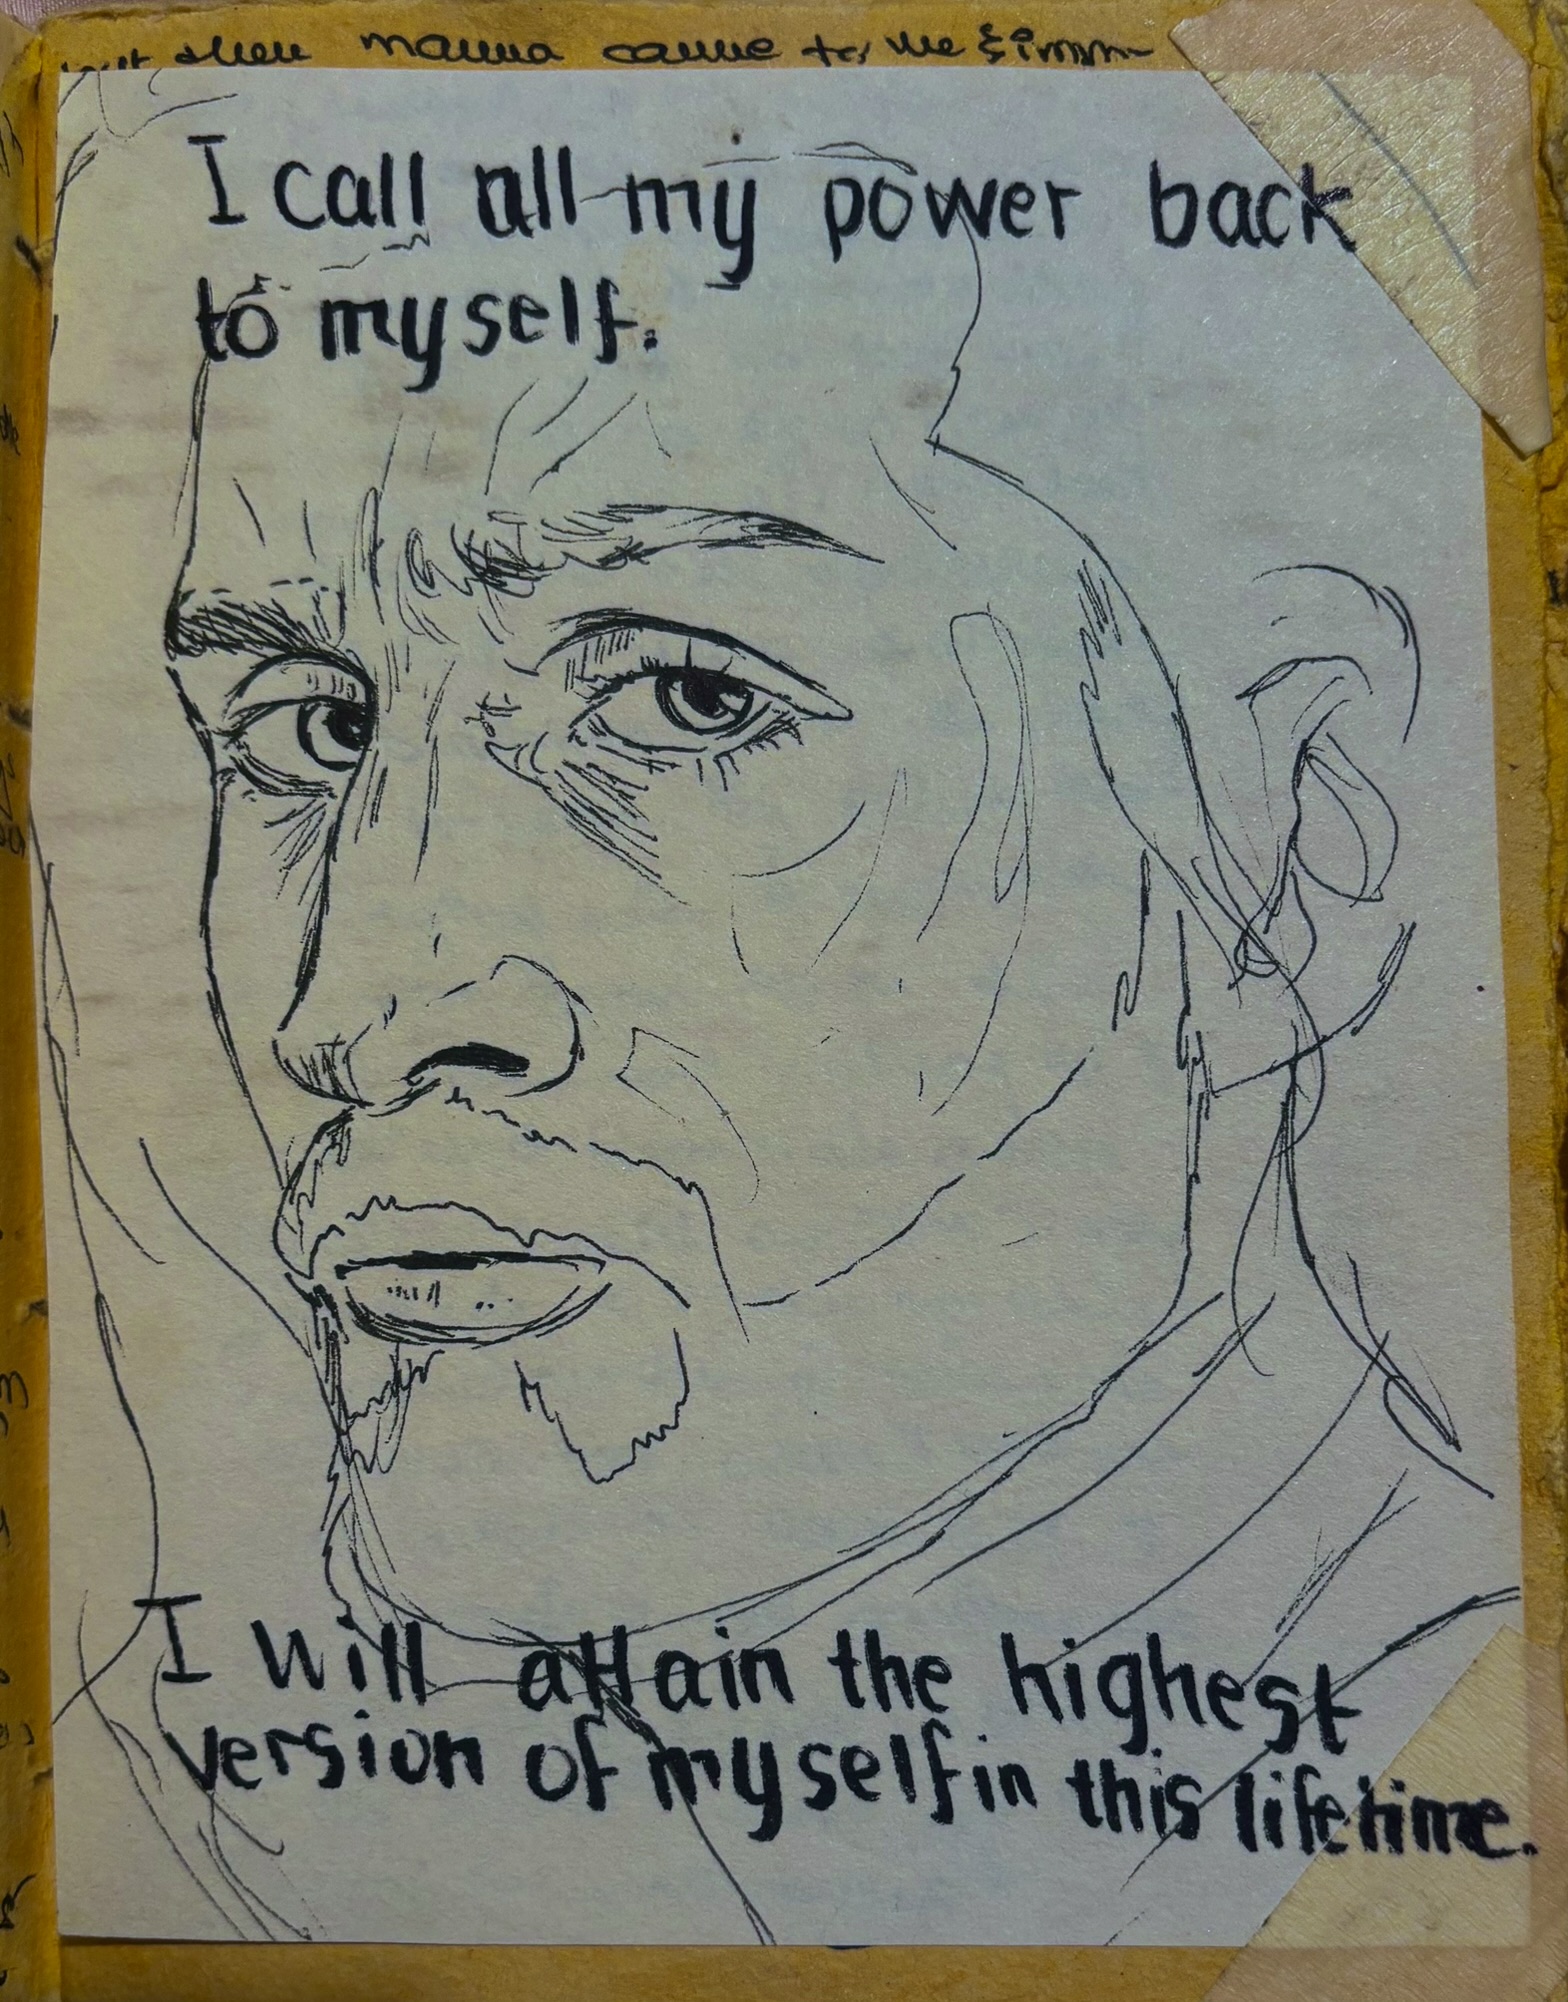 when mama came to me &
I call all my power back
to myself.
I will attain the highest
version of myself in this lifetime.